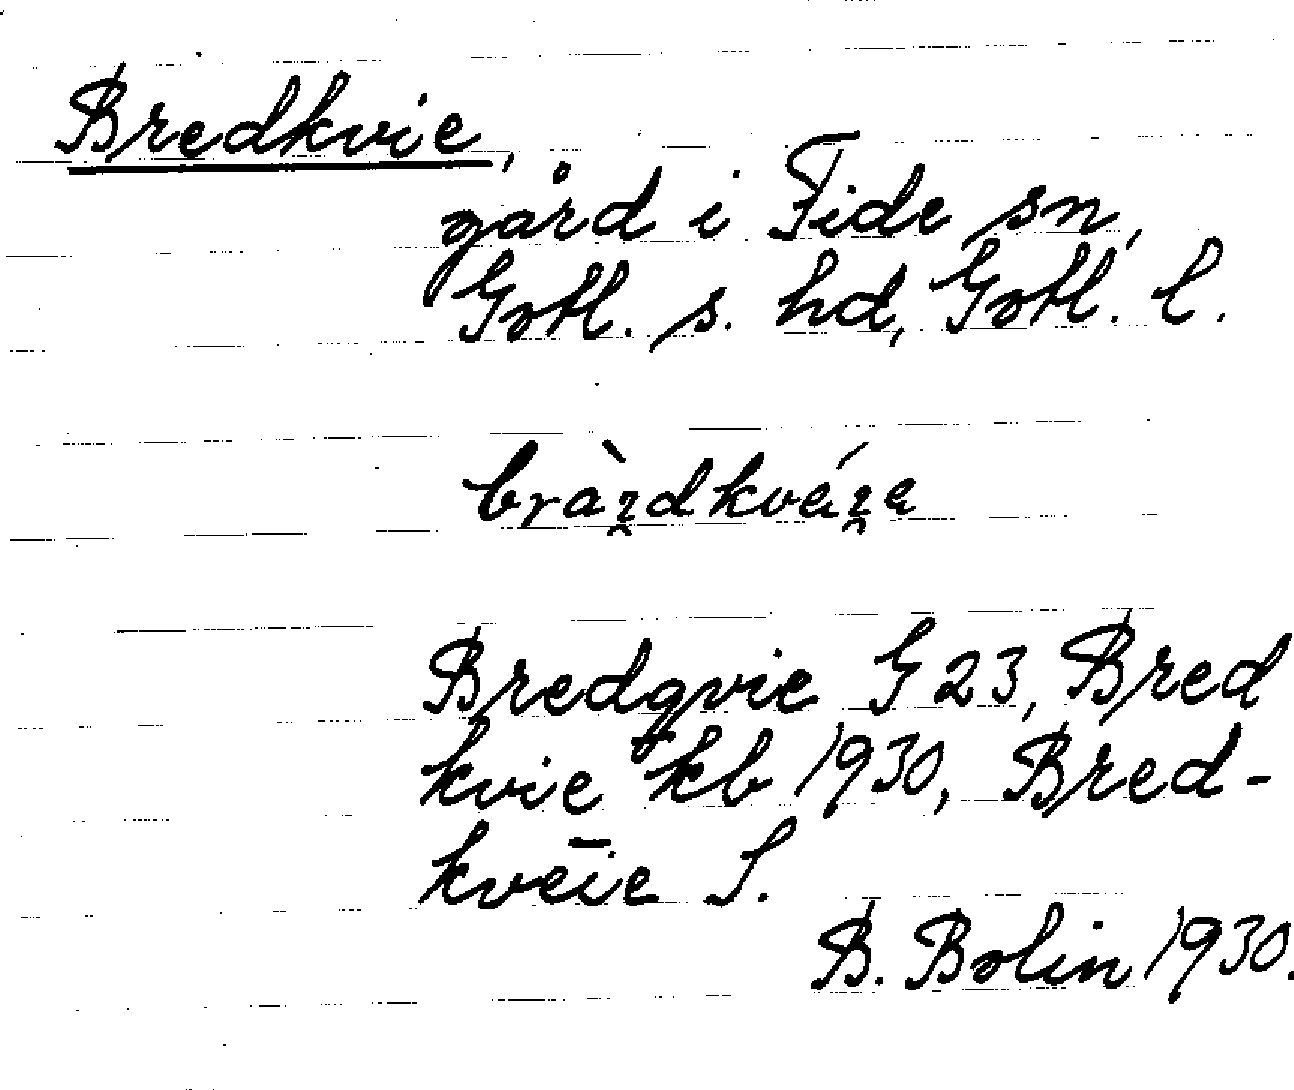 Bredkvie,
gård i Fide sn,
Gotl. s. hd, Gotl. l.
Bredqvie G 23, Bred
kvie kb 1930, Bred-
kvēie S.
B. Bolin 1930.